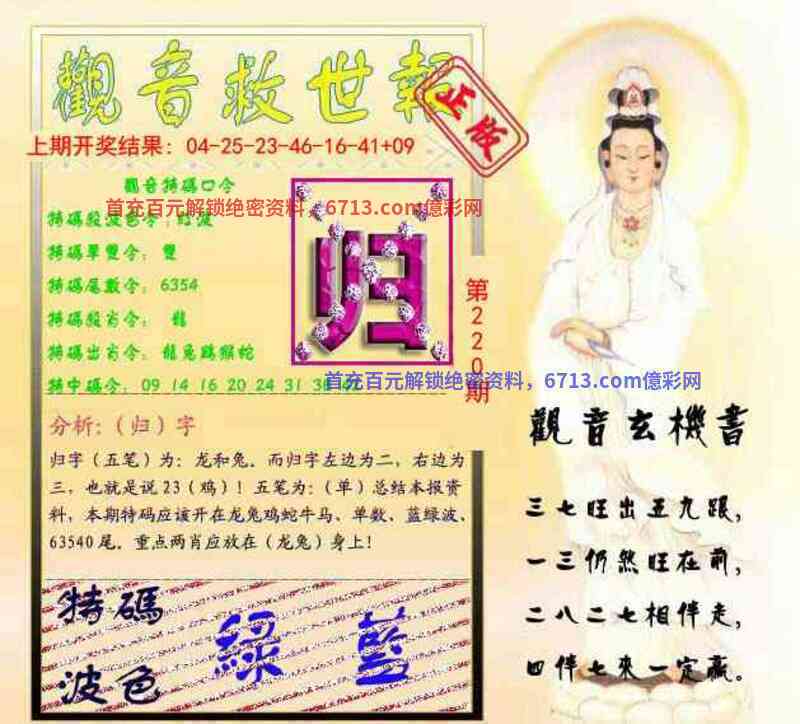 觀音救世報
正版
上期开奖结果：04-25-23-46-16-41+09
觀音特碼口令
首充百元解锁绝密资料，6713.com億彩网
特碼殺波色令：紅波
特碼單雙令：雙
特碼尾數令：6354
特碼殺肖令：龍
特碼出肖令：龍兔鷄猴蛇
特中碼令：09 14 16 20 24 31 38 42
归
第220期
首充百元解锁绝密资料，6713.com億彩网
分析:（归）字
归字（五笔）为：龙和兔．而归字左边为二，右边为
三，也就是说23（鸡）！五笔为：（单）总结本报资
料，本期特码应该开在龙兔鸡蛇牛马、单数、蓝绿波、
63540尾．重点两肖应放在（龙兔）身上！
特碼
波色
綠 藍
觀音玄機書
三七旺出五九跟，
一三仍然旺在前，
二八二七相伴走，
四伴七來一定贏。